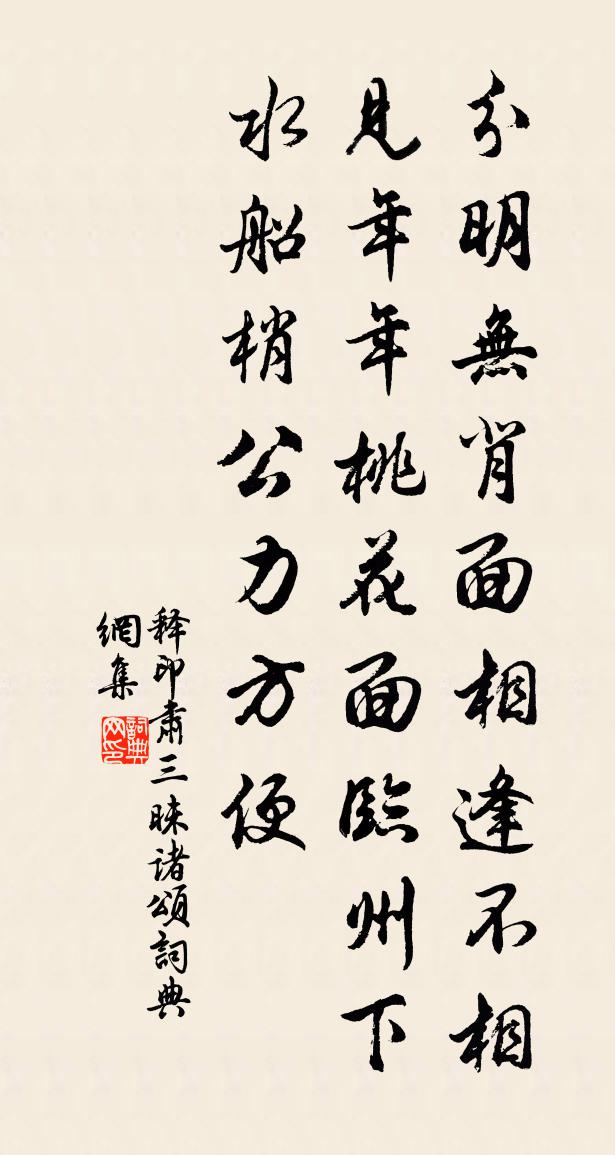 分明無背面相逢不相
見年年桃花面臨州下
水船梢公力方便
释印肅三昧诸頌詞典
網集
詞典
网印